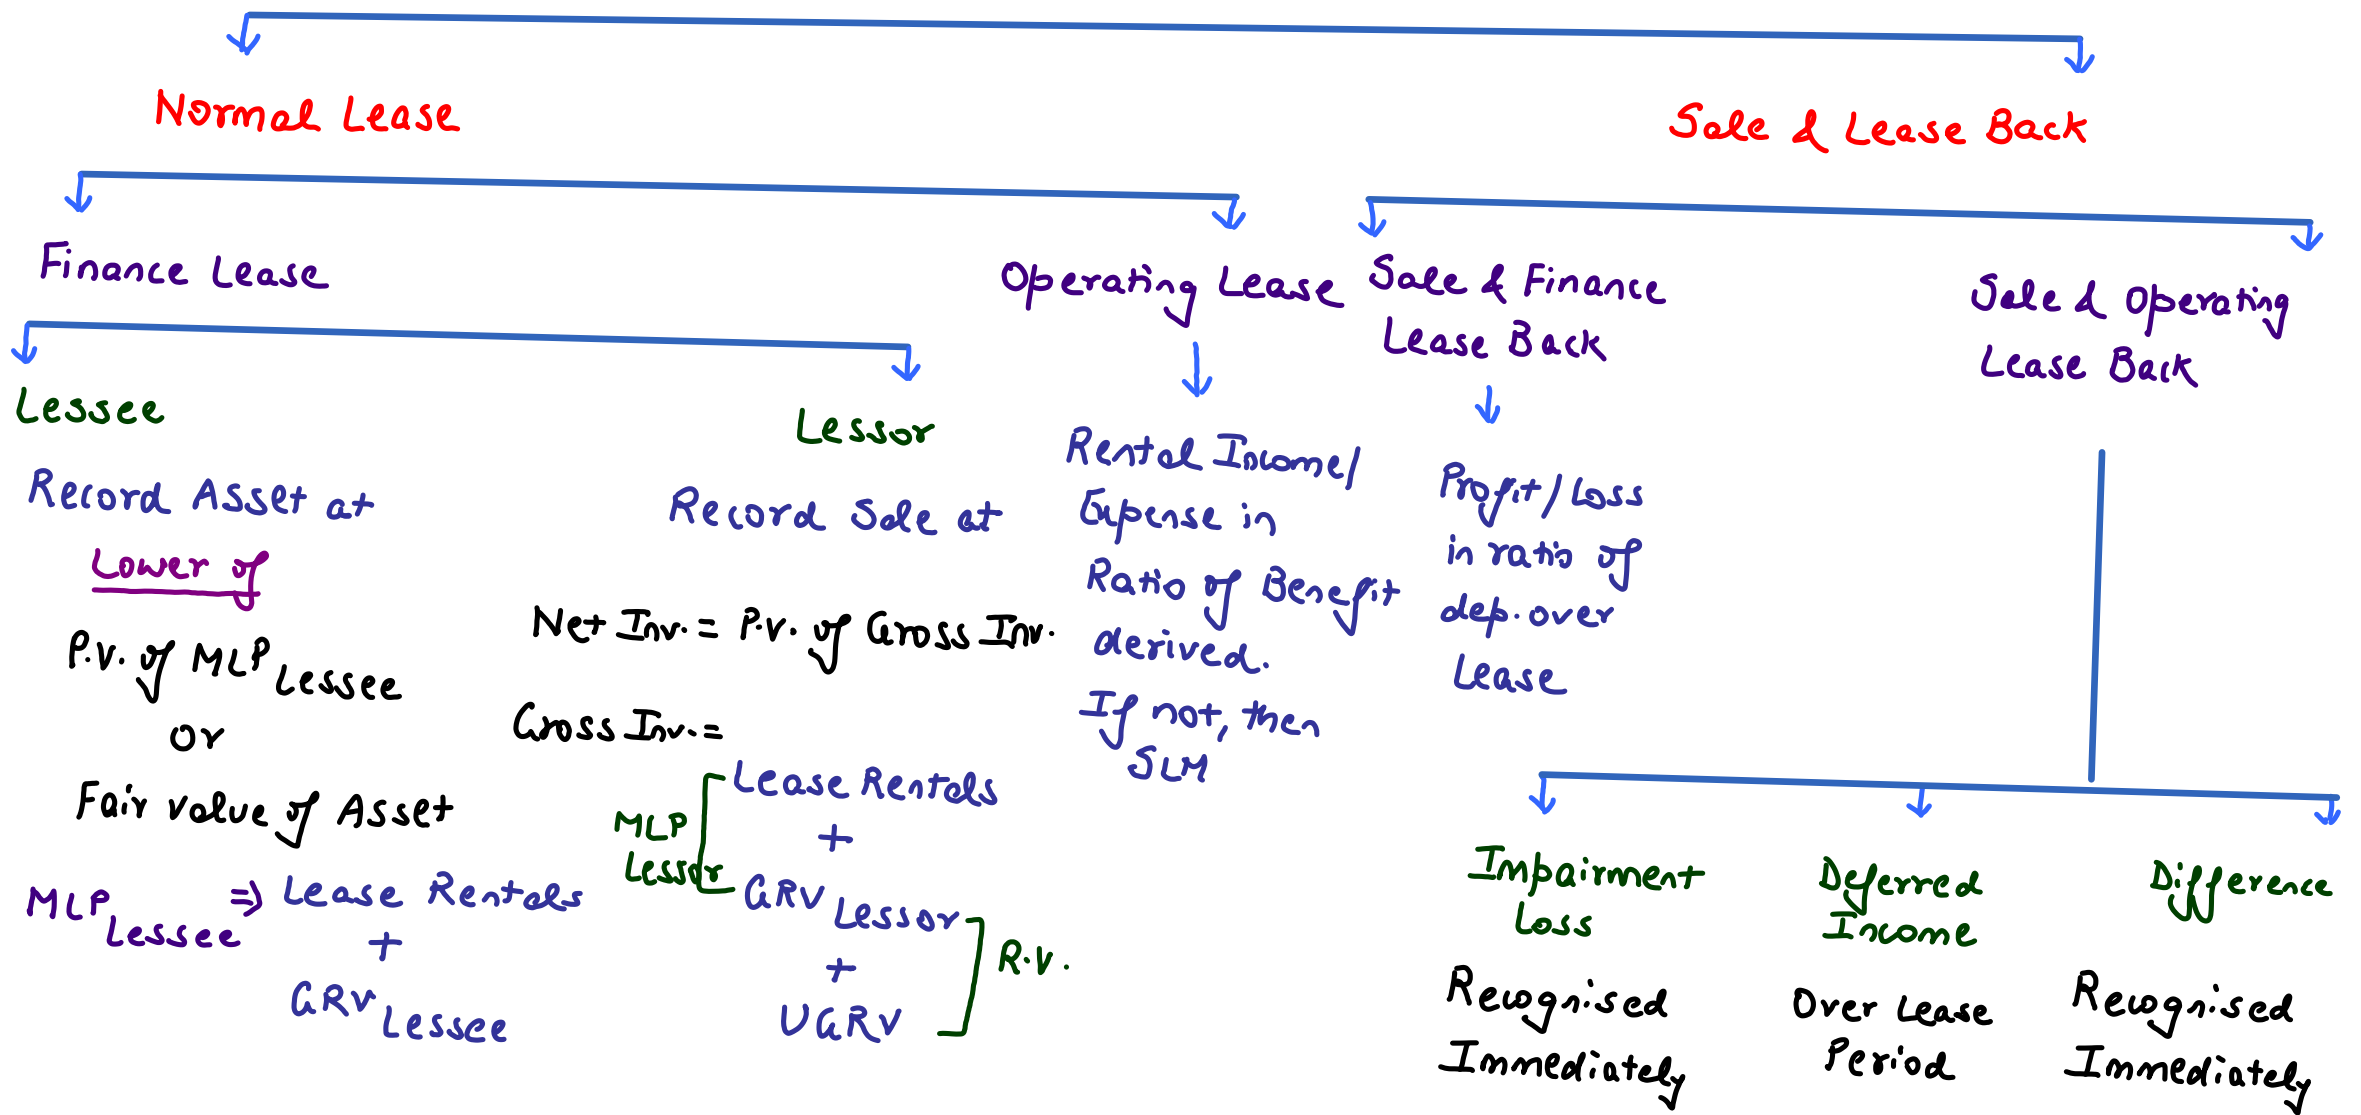 Normal Lease
Sale & Lease Back
Finance Lease
Operating Lease
Sale & Finance
Lease Back
Sale & Operating
Lease Back
Lessee
Record Asset at
Lower of
P.V. of MLP Lessee
or
Fair value of Asset
MLP Lessee ⇒ Lease Rentals
+
GRV Lessee
Lessor
Record Sale at
Net Inv. = P.V. of Gross Inv.
Gross Inv. =
MLP
Lessor
Lease Rentals
+
GRV Lessor
+
UGRV
R.V.
Rental Income/
Expense in
Ratio of Benefit
derived.
If not, then
SLM
Profit/Loss
in ratio of
dep. over
Lease
Impairment
Loss
Recognised
Immediately
Deferred
Income
Over Lease
Period
Difference
Recognised
Immediately